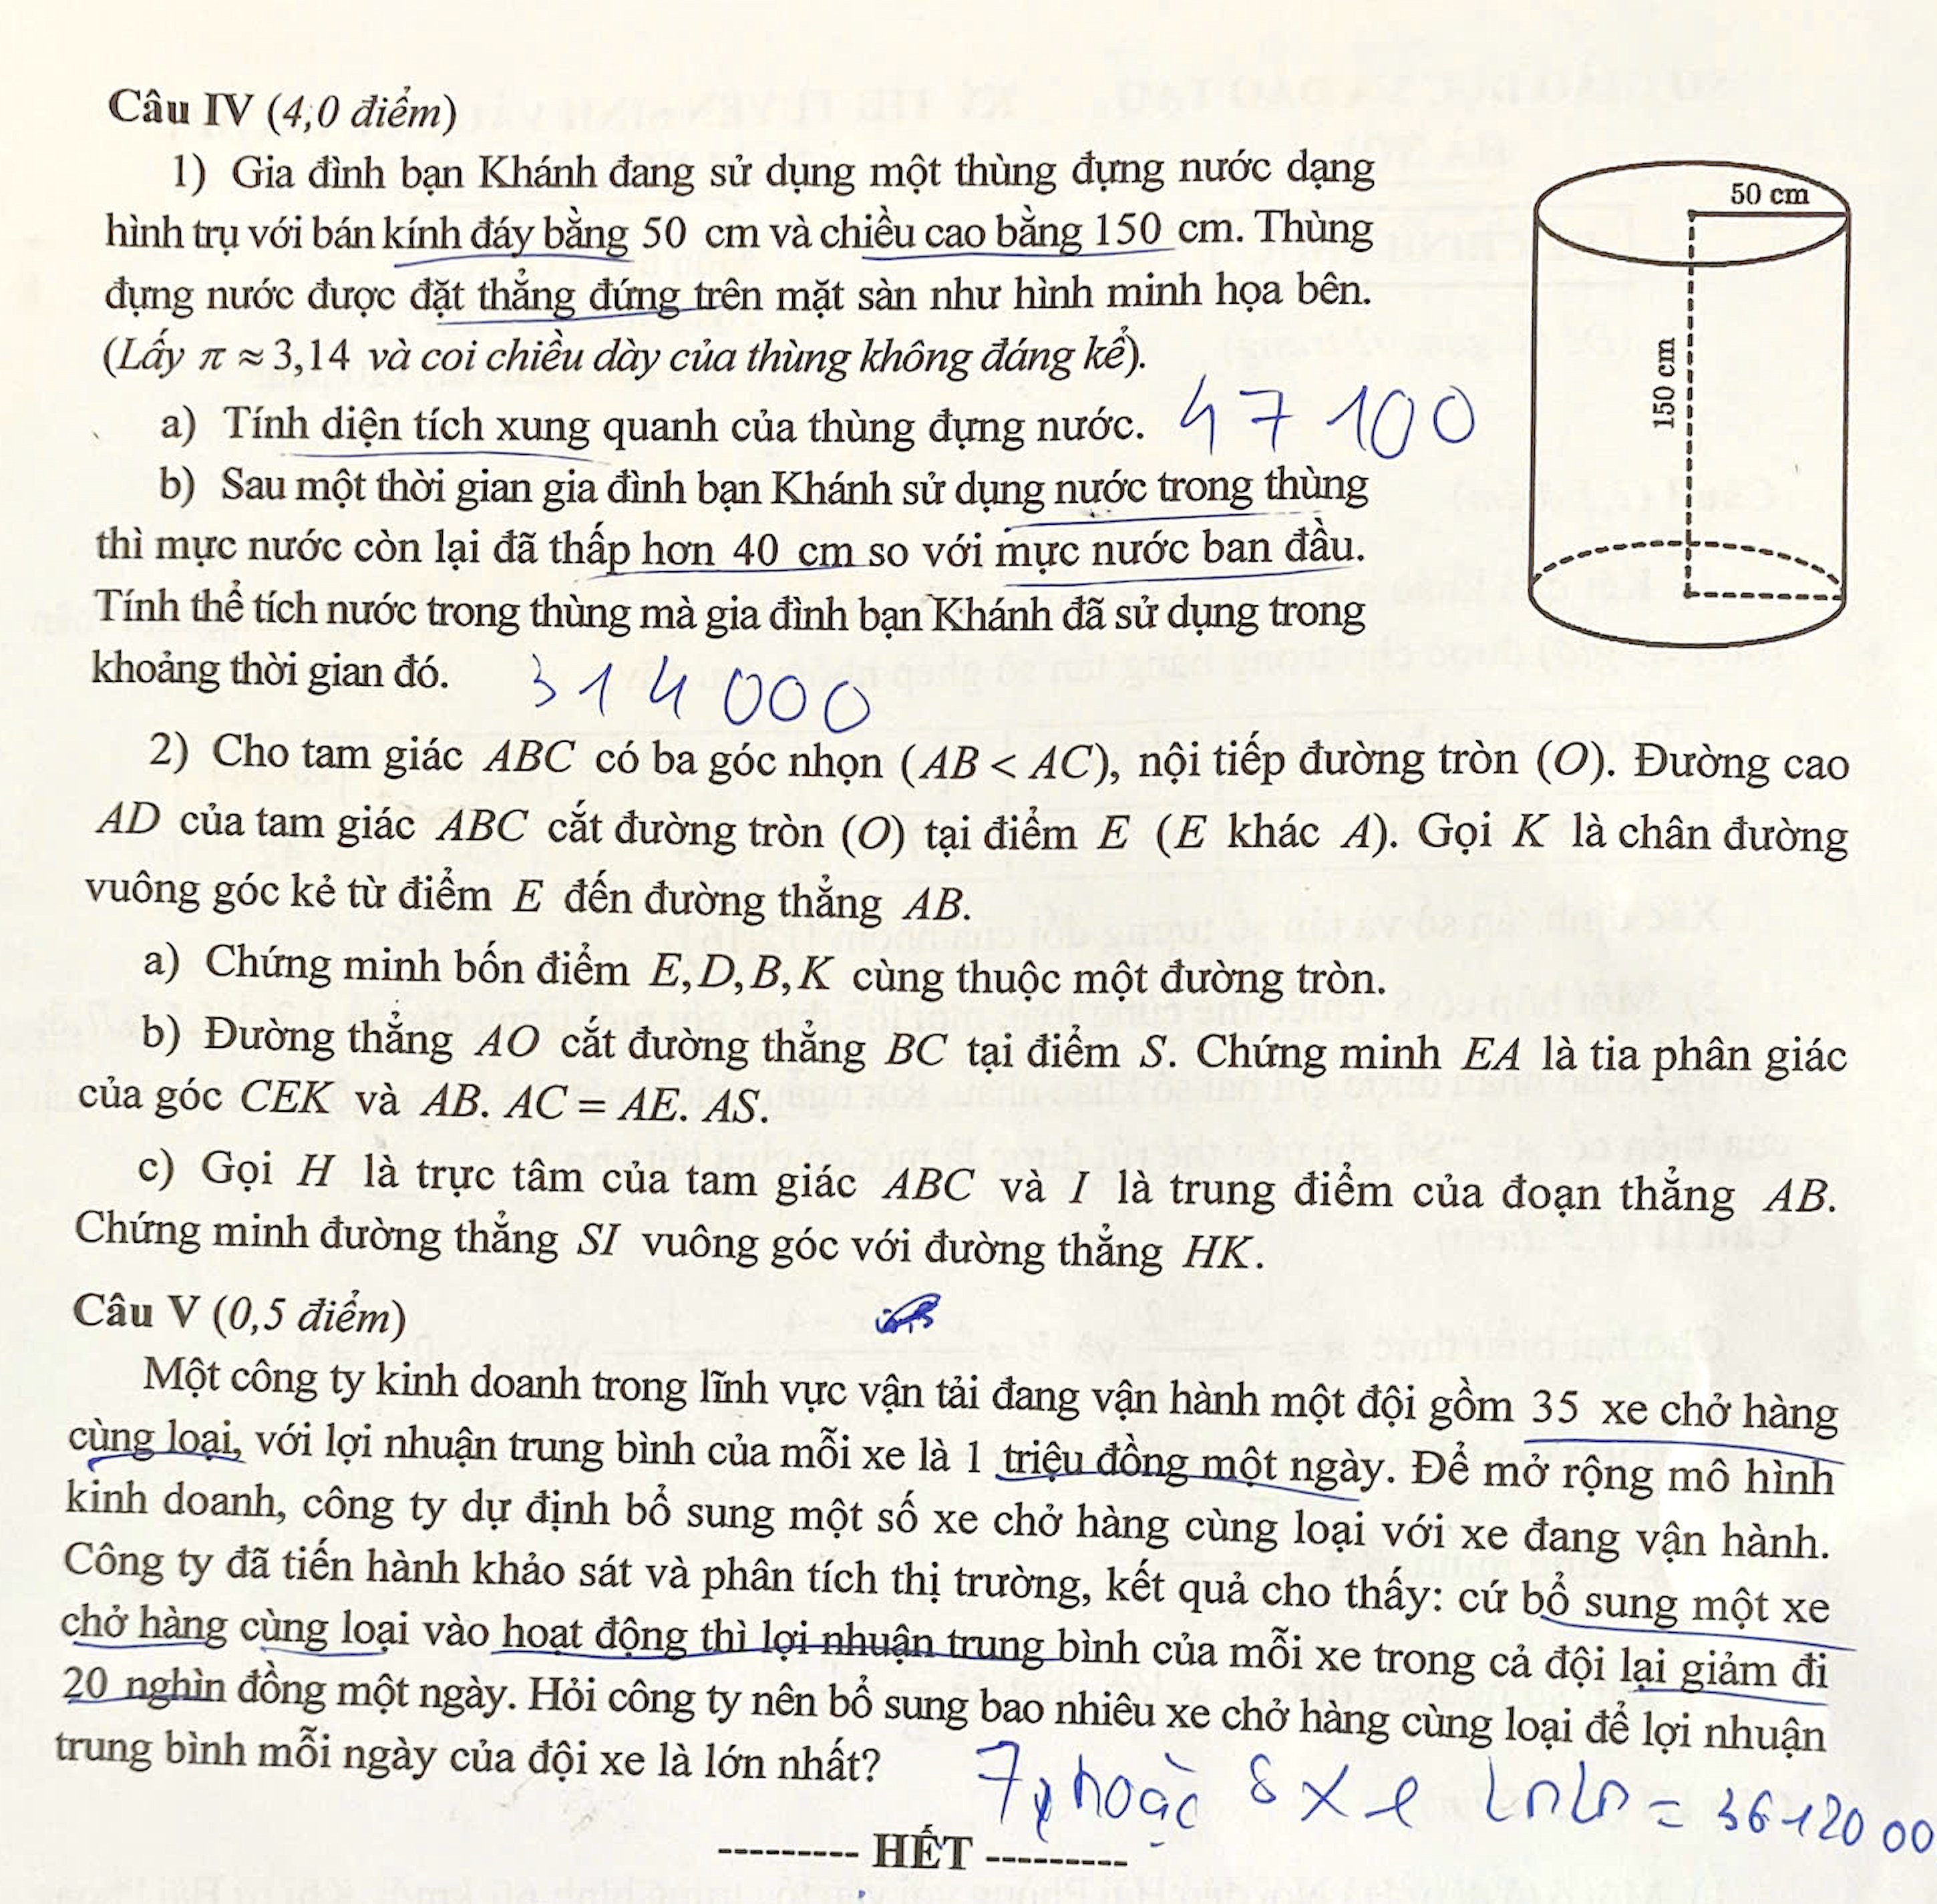 Câu IV (4,0 điểm)
1) Gia đình bạn Khánh đang sử dụng một thùng đựng nước dạng
hình trụ với bán kính đáy bằng 50 cm và chiều cao bằng 150 cm. Thùng
đựng nước được đặt thẳng đứng trên mặt sàn như hình minh họa bên.
(Lấy π ≈ 3,14 và coi chiều dày của thùng không đáng kể).
50 cm
150 cm
a) Tính diện tích xung quanh của thùng đựng nước. 47 100
b) Sau một thời gian gia đình bạn Khánh sử dụng nước trong thùng
thì mực nước còn lại đã thấp hơn 40 cm so với mực nước ban đầu.
Tính thể tích nước trong thùng mà gia đình bạn Khánh đã sử dụng trong
khoảng thời gian đó. 314 000
2) Cho tam giác ABC có ba góc nhọn (AB < AC), nội tiếp đường tròn (O). Đường cao
AD của tam giác ABC cắt đường tròn (O) tại điểm E (E khác A). Gọi K là chân đường
vuông góc kẻ từ điểm E đến đường thẳng AB.
a) Chứng minh bốn điểm E, D, B, K cùng thuộc một đường tròn.
b) Đường thẳng AO cắt đường thẳng BC tại điểm S. Chứng minh EA là tia phân giác
của góc CEK và AB. AC = AE. AS.
c) Gọi H là trực tâm của tam giác ABC và I là trung điểm của đoạn thẳng AB.
Chứng minh đường thẳng SI vuông góc với đường thẳng HK.
Câu V (0,5 điểm)
Một công ty kinh doanh trong lĩnh vực vận tải đang vận hành một đội gồm 35 xe chở hàng
cùng loại, với lợi nhuận trung bình của mỗi xe là 1 triệu đồng một ngày. Để mở rộng mô hình
kinh doanh, công ty dự định bổ sung một số xe chở hàng cùng loại với xe đang vận hành.
Công ty đã tiến hành khảo sát và phân tích thị trường, kết quả cho thấy: cứ bổ sung một xe
chở hàng cùng loại vào hoạt động thì lợi nhuận trung bình của mỗi xe trong cả đội lại giảm đi
20 nghìn đồng một ngày. Hỏi công ty nên bổ sung bao nhiêu xe chở hàng cùng loại để lợi nhuận
trung bình mỗi ngày của đội xe là lớn nhất?
7 hoặc 8 xe LnLn = 3612000
--------- HẾT ---------